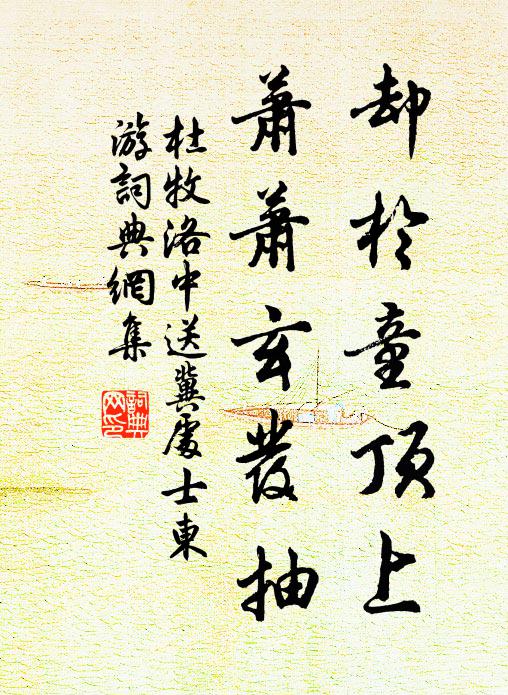 却於童頂上
蕭蕭玄發抽
杜牧洛中送冀處士東
游詞典網集
詞典
网印